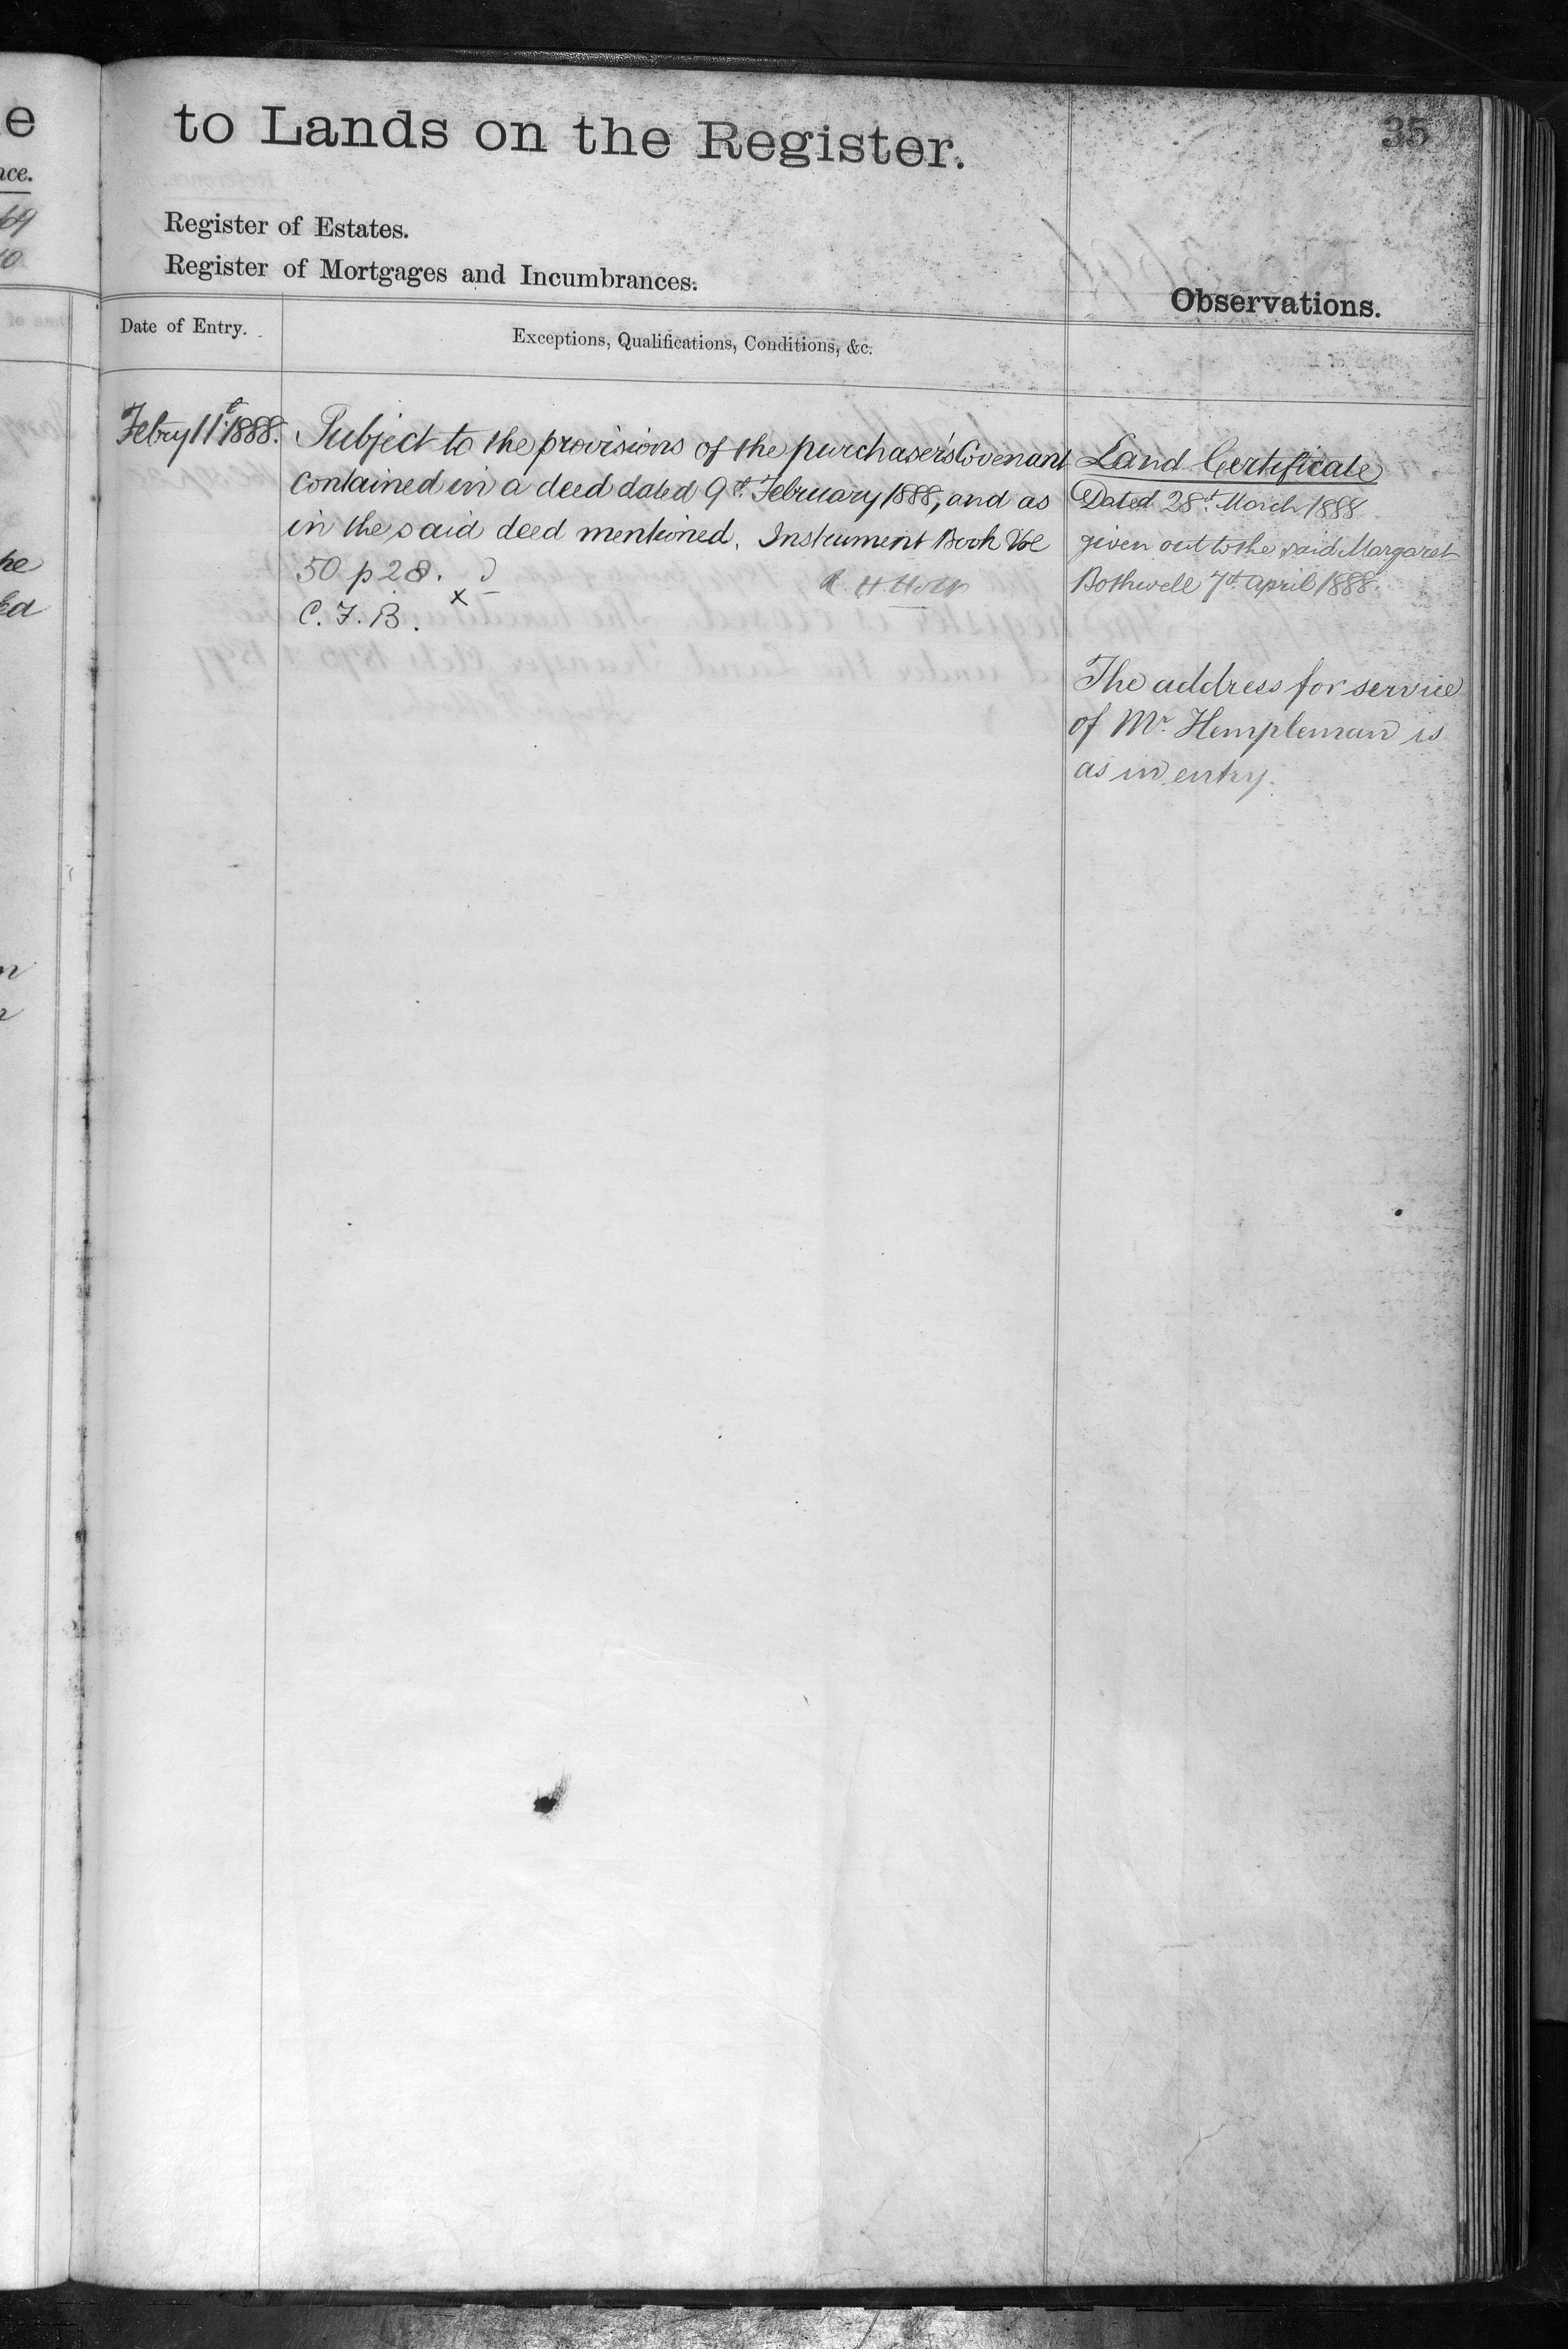 to Lands on the Register.
35
Register of Estates.
Register of Mortgages and Incumbrances.
Observations.
Date of Entry.
Exceptions, Qualifications, Conditions, &c.
Febry 11t 1888.
Subject to the provisions of the purchaser's Covenant
contained in a deed dated 9th February 1888, and as
in the said deed mentioned. Instrument Book Vol
50 p 28.
C. F. B.
R. H. Holt
Land Certificate
Dated 28th March 1888
given out to the said Margaret
Bothwell 7th April 1888.
The address for service
of Mr. Hempleman is
as in entry.